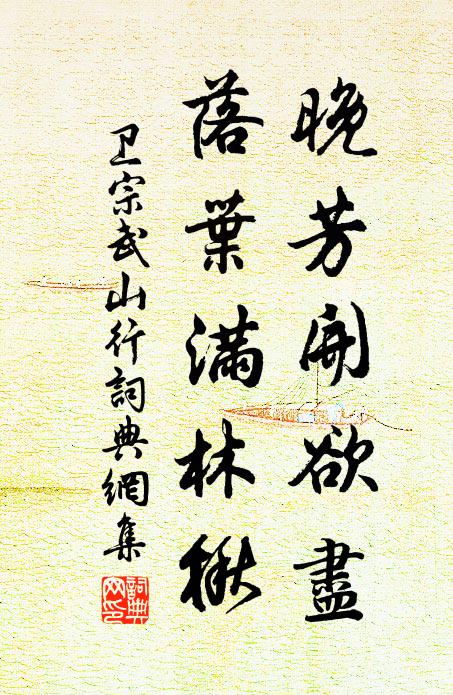 晚芳開欲盡
落葉滿林秋
卫宗武山行詞典網集
詞典
网印